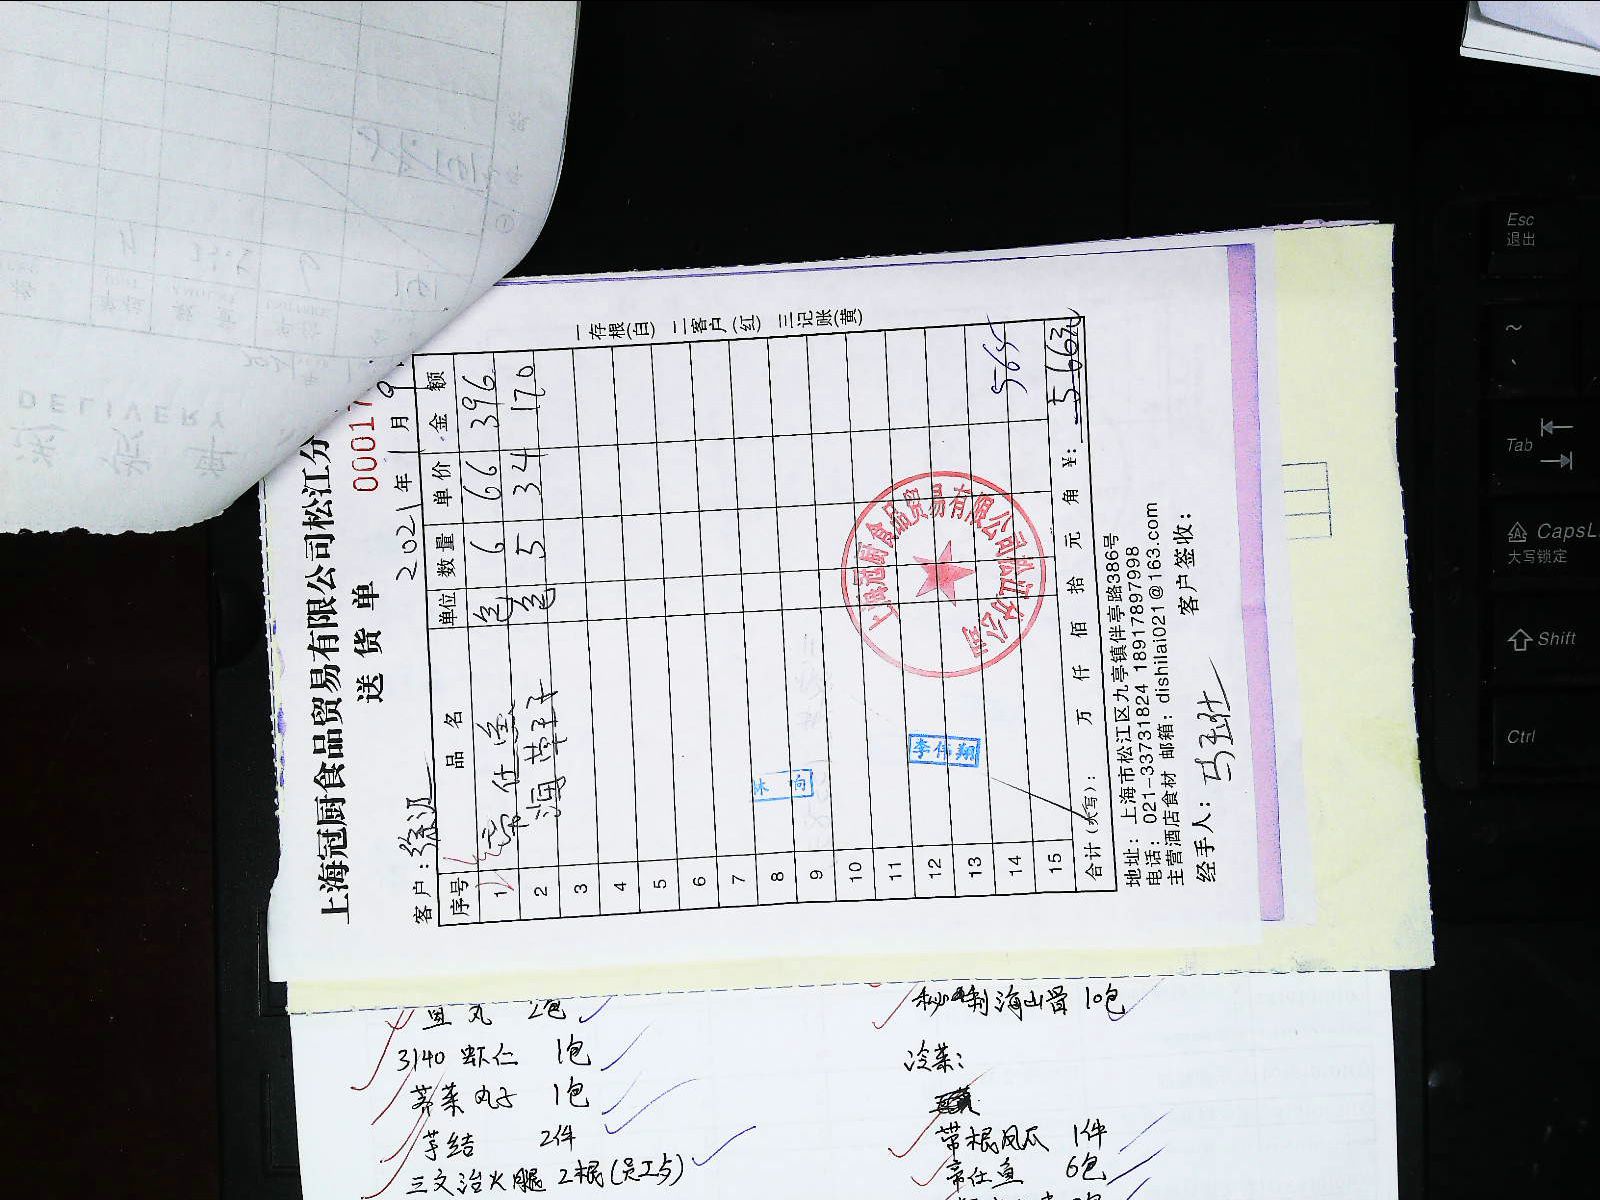 上海冠厨食品贸易有限公司松江分
送货单
0001
客户:徐汉
2021年1月9
序号 品名 单位 数量 单价 金额
1 帝仕鱼 包 6 66 396
2 海草子 包 5 34 170
3
4
5
6
7
8
9
10
11
12
13
14 565
15
合计(大写): 万 仟 佰 拾 元 角 ¥: 566元
一存根(白) 二客户(红) 三记账(黄)
上海冠厨食品贸易有限公司松江分公司
李伟翔
地址: 上海市松江区九亭镇伴亭路386号
电话: 021-33731824 18917897998
主营酒店食材 邮箱: dishilai021@163.com
经手人: 马玉仕 客户签收:
鱼丸 2包
3140 虾仁 1包
荠菜丸子 1包
芋结 2件
三文治火腿 2根(员工与)
秘制海山骨 10包
冷菜:
带根凤爪 1件
帝仕鱼 6包
DELIVERY
Esc
退出
~
Tab
CapsL
大写锁定
Shift
Ctrl